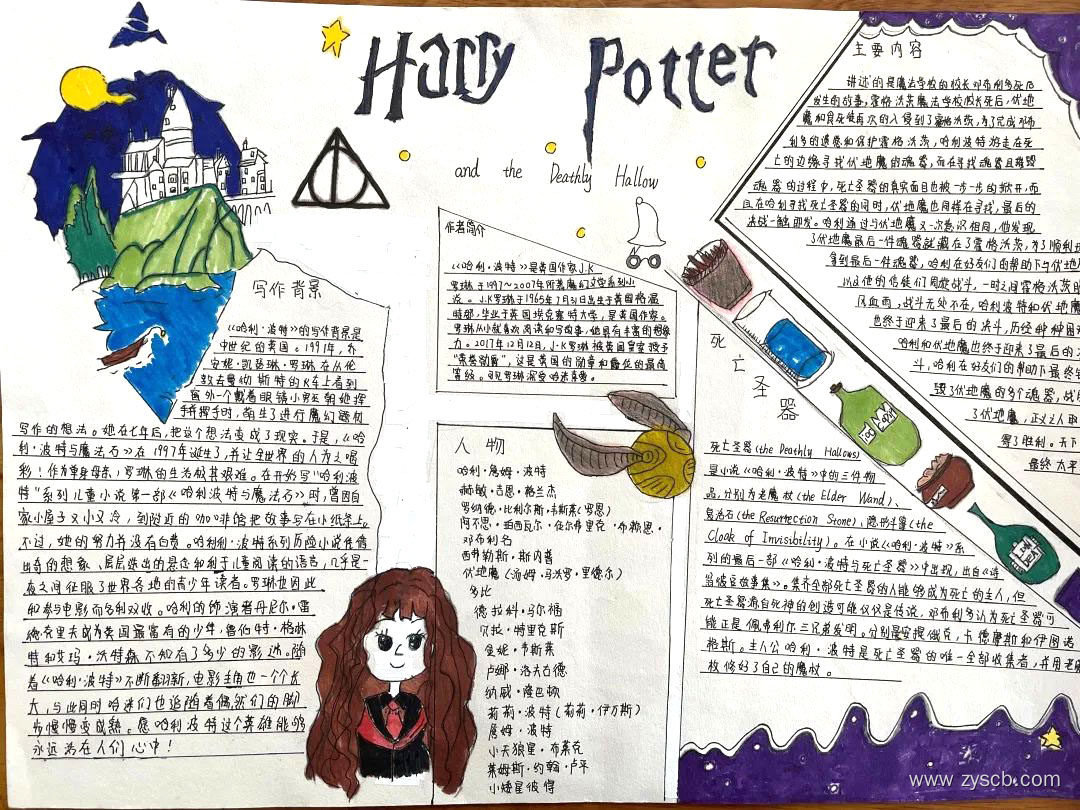 Harry Potter
and the Deathly Hallow
写作背景
《哈利·波特》的写作背景是
中世纪的英国。1991年，乔
安妮·凯瑟琳·罗琳在从伦
敦去曼彻斯特的火车上看到
窗外一个戴着眼镜小男巫朝她挥
手挥手时，萌生了进行魔幻题材
写作的想法。她在七年后，把这个想法变成了现实。于是，《哈
利·波特与魔法石》在1997年诞生了，并让全世界的人为之喝
彩！作为单身母亲，罗琳的生活极其艰难。在开始写"哈利波
特"系列儿童小说第一部《哈利波特与魔法石》时，曾因自
家小屋子又小又冷，到附近的咖啡馆把故事写在小纸条上。
不过，她的努力并没有白费。哈利·波特系列历险小说凭借
出奇的想象、层层迭出的悬念和利于儿童阅读的语言，几乎是一
夜之间征服了世界各地的青少年读者。罗琳也因此
和参与电影而名利双收。哈利的饰演者丹尼尔·雷
德克里夫成为英国最富有的少年，鲁伯特·格林
特和艾玛·沃特森不知有了多少的影迷。随
着《哈利·波特》不断翻新，电影主角也一个个长
大，与此同时哈迷们也追随着偶然们的脚
步慢慢变成熟。愿哈利波特这个英雄能够
永远活在人们心中！
作者简介
《哈利·波特》是英国作家J.K.
罗琳于1997~2007年所著魔幻文学系列小
说。J.K罗琳于1965年7月31日出生于英国格温
特郡，毕业于英国埃克塞特大学，是英国作家。
罗琳从小就喜欢阅读和写故事，她具有丰富的想象
力。2017年12月12日，J.K罗琳被英国皇家授予
"荣誉勋爵"，这是英国的勋章和爵位的最高
等级。可见罗琳深受哈迷喜爱。
人物
哈利·詹姆·波特
赫敏·吉恩·格兰杰
罗纳德·比利尔斯·韦斯莱（罗恩）
阿不思·珀西瓦尔·伍尔弗里克·布赖恩·
邓布利多
西弗勒斯·斯内普
伏地魔（汤姆·马沃罗·里德尔）
多比
德拉科·马尔福
贝拉·特里克斯
金妮·韦斯莱
卢娜·洛夫古德
纳威·隆巴顿
莉莉·波特（莉莉·伊万斯）
詹姆·波特
小天狼星·布莱克
莱姆斯·约翰·卢平
小矮星彼得
主要内容
讲述的是魔法学校的校长邓布利多死后
发生的故事，霍格沃茨魔法学校校长死后，伏地
魔和食死徒再次的入侵到了霍格沃茨，为了完成邓布
利多的遗愿和保护霍格沃茨，哈利波特游走在死
亡的边缘寻找伏地魔的魂器，而在寻找魂器且摧毁
魂器的过程中，死亡圣器的真实面目也被一步一步的掀开，而
且在哈利寻找死亡圣器的同时，伏地魔也同样在寻找，最后的
决战一触即发。哈利通过与伏地魔又一次意识相同，他发现
了伏地魔最后一件魂器就藏在了霍格沃茨，为了顺利找
拿到最后一件魂器，哈利在好友们的帮助下与伏地
以及他的信徒们周旋战斗，一时之间霍格沃茨
风血雨，战斗无处不在，哈利波特和伏地魔
也终于迎来了最后的决斗，历经种种困
哈利和伏地魔也终于迎来了最后的
斗，哈利在好友们的帮助下最终
毁了伏地魔的多个魂器，战
了伏地魔，正义人取
得了胜利。天下
最终太平
死亡圣器
死亡圣器(the Deathly Hallows)
是小说《哈利·波特》中的三件物
品，分别为老魔杖(the Elder Wand)、
复活石(the Resurrection Stone)、隐形斗篷(the
Cloak of Invisibility)。在小说《哈利·波特》系
列的最后一部《哈利·波特与死亡圣器》中出现，出自《诗
翁彼豆故事集》。集齐全部死亡圣器的人能够成为死亡的主人，但
死亡圣器源自死神的创造可能仅仅是传说，邓布利多认为死亡圣器可
能正是佩弗利尔三兄弟发明。分别是安提俄克，卡德摩斯和伊图诺
拖斯。主人公哈利·波特是死亡圣器的唯一全部收集者，并用老
杖修好了自己的魔杖。
www.zyscb.com